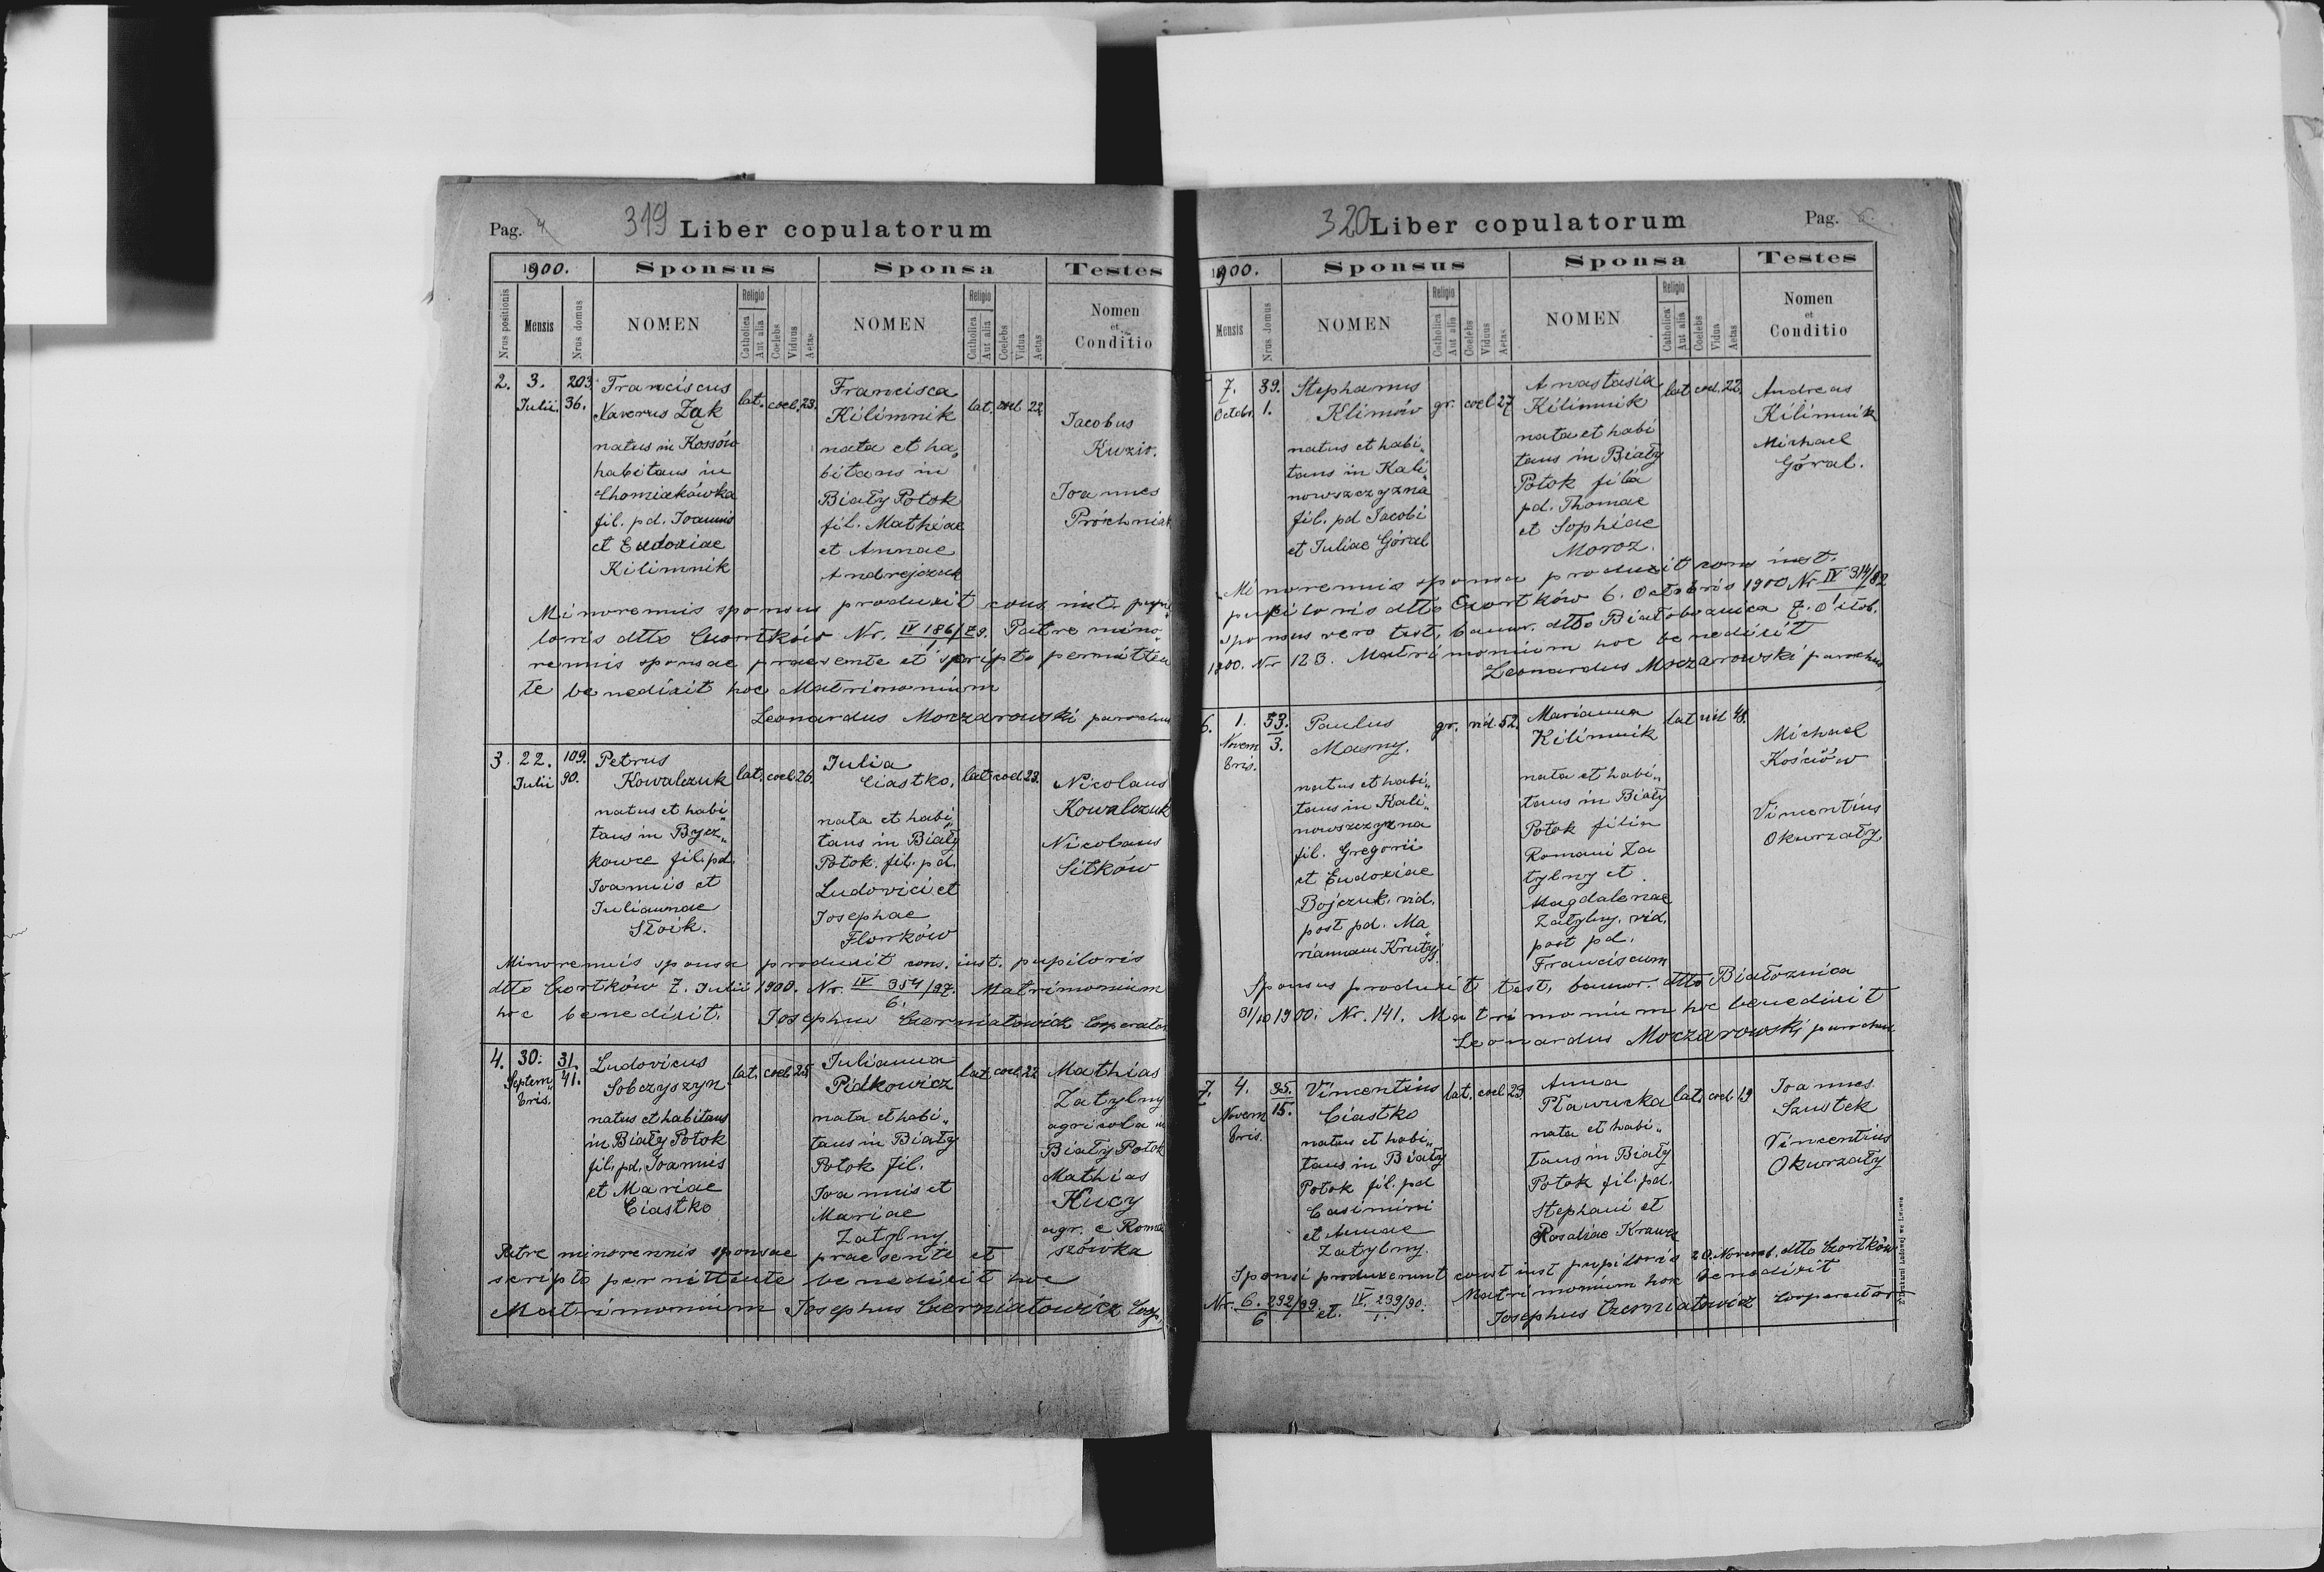 Pag. 4
319 Liber copulatorum
1900. Sponsus Sponsa Testes
Nrus positionis Mensis Nrus domus NOMEN Religio Catholica Aut alia Coelebs Viduus Aetas NOMEN Religio Catholica Aut alia Coelebs Vidua Aetas Nomen et Conditio
2. 3. Julii. 203. 36.
Franciscus
Xaverus Żąk
natus in Kossów
habitans in
Chomiakówka
fil. pd. Joannis
et Eudoxiae
Kilimnik
lat. coel. 23.
Francisca
Kilimnik
nata et ha„
bitans in
Biały Potok
fil. Mathiae
et Annae
Andrejczuk
lat. coel 22
Jacobus
Kuziv.
Joannes
Próchniak
Minorennis sponsus produxit cons. inst. pupi
loris dtto Czortków Nr. IV 186/79. Patre mino„
rennis sponsae praesente et scripto permitten
te benedixit hoc Matrimonium
Leonardus Moczarowski parochus
3. 22. Julii 109. 90.
Petrus
Kowalczuk
natus et habi„
tans in Bycz„
kowce fil. pd.
Joannis et
Juliannae
Stoik.
lat. coel. 26.
Julia
Ciastko,
nata et habi„
tans in Biały
Potok. fil. pd.
Ludovici et
Josephae
Florków
lat. coel. 23.
Nicolaus
Kowalczuk
Nicolaus
Sitków
Minorennis sponsa produxit cons. inst. pupiloris
dtto Czortków 7. Julii 1900. Nr. IV 354/97. 6. Matrimonium
hoc benedixit. Josephus Czerniatowicz Cooperator
4. 30. Septem„ bris. 31. 41.
Ludovicus
Sobczyszyn
natus et habitans
in Biały Potok
fil. pd. Joannis
et Mariae
Ciastko
lat. coel 25
Julianna
Pidkowicz
nata et habi„
tans in Biały
Potok fil.
Joannis et
Mariae
Zatylny
lat. coel. 22
Mathias
Zatylny
agricola in
Biały Potok
Mathias
Kucy
agr. e Roma
szówka
Patre minorennis sponsae praesente et
scripto permittente benedixit hoc
Matrimonium Josephus Czerniatowicz Coop.
320 Liber copulatorum
Pag.
1900. Sponsus Sponsa Testes
Mensis Nrus domus NOMEN Religio Catholica Aut alia Coelebs Viduus Aetas NOMEN Religio Catholica Aut alia Coelebs Vidua Aetas Nomen et Conditio
7. Octobr. 39. 1.
Stephanus
Klimów
natus et habi„
tans in Kali„
nowszczyzna
fil. pd Jacobi
et Juliae Góral
gr. coel 27
Anastasia
Kilimnik
nata et habi
tans in Biały
Potok filia
pd. Thomae
et Sophiae
Moroz.
lat coel. 22,
Andreas
Kilimnik
Michael
Góral.
Minorennis sponsa produxit cons inst.
pupiloris dtto Czortków 6. Octobris 1900 Nr IV 314/82 1
sponsus vero test, bannor. dtto Białobożnica 7. Octob.
1900. Nr 123. Matrimonium hoc benedixit
Leonardus Moczarowski parochus
6. 1. Novem bris. 53. 3.
Paulus
Masny.
natus et habi„
tans in Kali„
nowszczyzna
fil. Gregorii
et Eudoxiae
Bojczuk. vid.
post pd. Ma„
riannam Krutyj.
gr. vid. 52.
Marianna
Kilimnik
nata et habi„
tans in Biały
Potok filia
Romani Za
tylny et
Magdalenae
Zatylny. vid.
post pd.
Franciscum
lat vid 48.
Michael
Kościów
Vincentius
Okurzały
Sponsus produxit test, bannor. dtto Białoznica
31/10 1900. Nr. 141. Matrimonium hoc benedixit
Leonardus Moczarowski parochus
7. 4. Novem bris. 35. 15.
Vincentius
Ciastko
natus et habi„
tans in Biały
Potok fil. pd
Casimiri
et Annae
Zatylny.
lat. coel 23.
Anna
Pławucka
nata et habi„
tans in Biały
Potok fil. pd.
Stephani et
Rosaliae Krawcz
lat. coel. 19
Joannes
Szustek
Vincentius
Okurzały
Sponsi produxerunt const inst pupiloris 20. Novemb. dtto Czortków
Nr. 6. 292/99. 6 et. IV. 239/90. 1. Matrimonium hoc benedixit
Josephus Czerniatowicz Cooperator